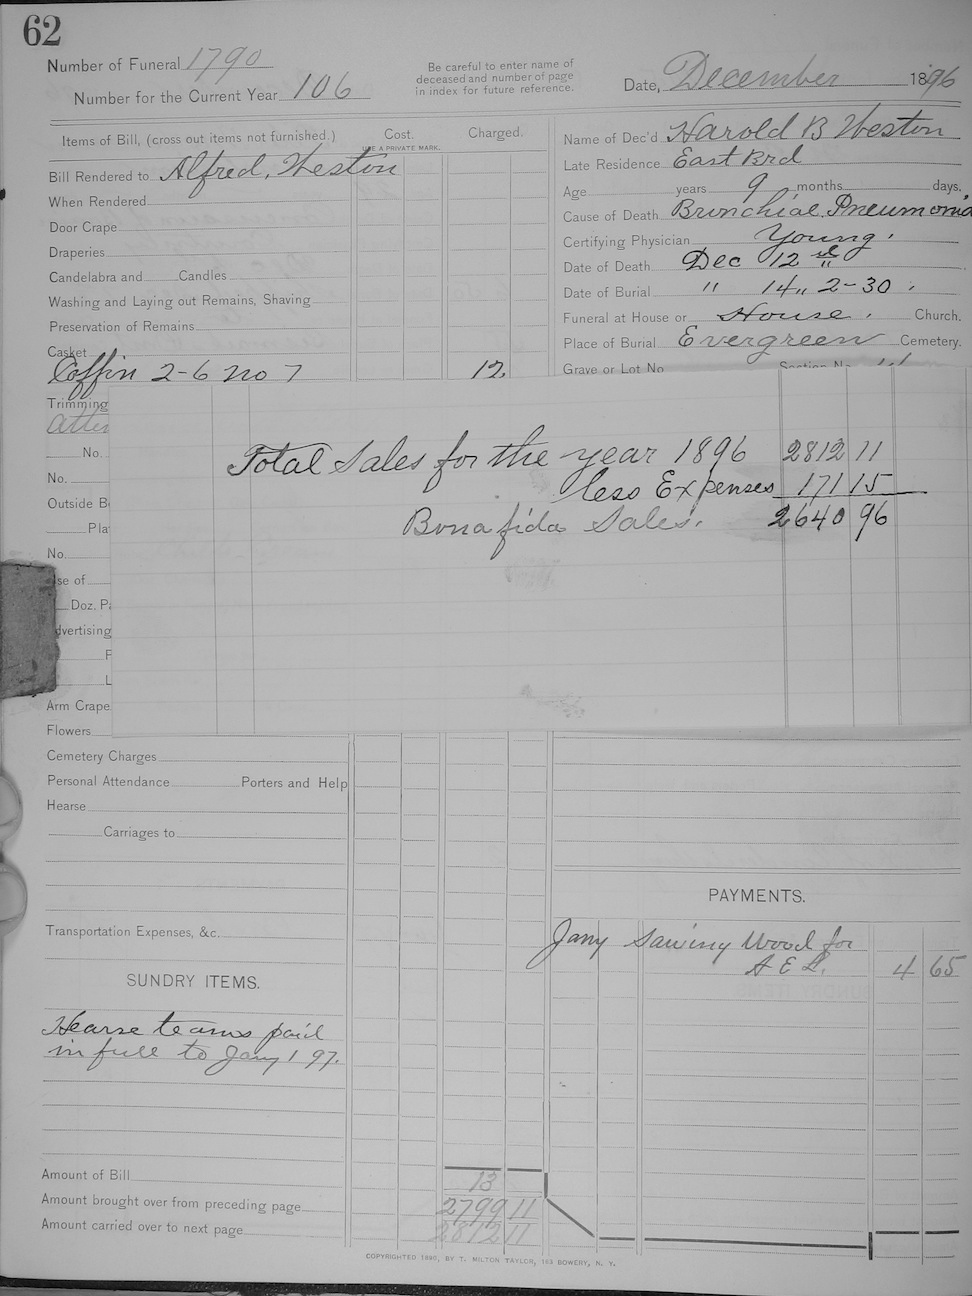 62
Number of Funeral 1790
Number for the Current Year 106
Be careful to enter name of
deceased and number of page
in index for future reference.
Date, December 1896
Items of Bill, (cross out items not furnished.) Cost. Charged.
USE A PRIVATE MARK.
Bill Rendered to Alfred, Weston
When Rendered
Door Crape
Draperies
Candelabra and Candles
Washing and Laying out Remains, Shaving
Preservation of Remains
Casket
Coffin 2-6 no 7 12
Trimming
No.
No.
Outside B
Pla
No.
se of
Doz. P
dvertising
F
L
Arm Crape
Flowers
Cemetery Charges
Personal Attendance Porters and Help
Hearse
Carriages to
Transportation Expenses, &c.
SUNDRY ITEMS.
Hearse teams paid
in full to Jany 1 97.
Amount of Bill 13
Amount brought over from preceding page 2799 11
Amount carried over to next page 2812 11
Name of Dec'd Harold B Weston
Late Residence East Brd
Age years 9 months days.
Cause of Death Bronchial Pneumonia
Certifying Physician Young.
Date of Death Dec 12
Date of Burial " 14 " 2-30.
Funeral at House or House. Church.
Place of Burial Evergreen Cemetery.
Grave or Lot No Section No
Total Sales for the year 1896 2812 11
less Expenses 171 15
Bonafida Sales. 2640 96
PAYMENTS.
Jany Sawing Wood for
A E L. 4 65
COPYRIGHTED 1890, BY T. MILTON TAYLOR, 153 BOWERY, N. Y.